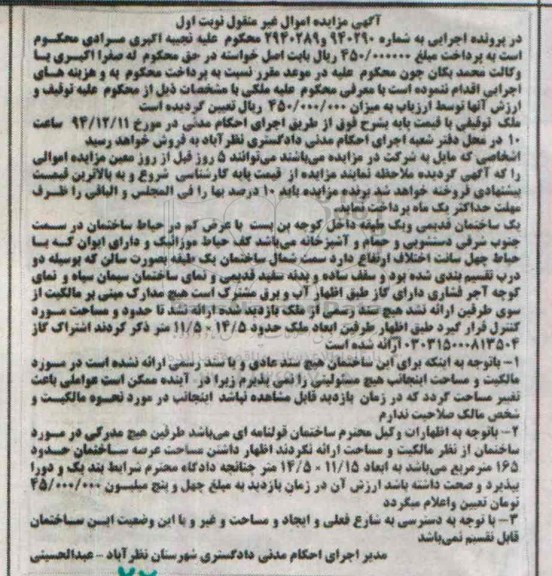 آگهی مزایده اموال غیر منقول نوبت اول
در پرونده اجرایی به شماره ۹۴۰۲۹۰ و ۲۹۴۰۲۸۹ محکوم علیه نجیبه اکبری مرادی محکوم
است به پرداخت مبلغ ۴۵۰/۰۰۰۰۰۰ ریال بابت اصل خواسته در حق محکوم له صفرا اکبری با
وکالت محمد یکان چون محکوم علیه در موعد مقرر نسبت به پرداخت محکوم به و هزینه های
اجرایی اقدام ننموده است با معرفی محکوم علیه ملکی با مشخصات ذیل از محکوم علیه توقیف و
ارزش آنها توسط ارزیاب به میزان ۴۵۰/۰۰۰/۰۰۰ ریال تعیین گردیده است
ملک توقیفی با قیمت پایه بشرح فوق از طریق اجرای احکام مدنی در مورخ ۹۴/۱۲/۱۱ ساعت
۱۰ در محل دفتر شعبه اجرای احکام مدنی دادگستری نظرآباد به فروش خواهد رسید
اشخاصی که مایل به شرکت در مزایده می‌باشند می‌توانند ۵ روز قبل از روز معین مزایده اموالی
را که آگهی گردیده ملاحظه نمایند مزایده از قیمت پایه کارشناسی شروع و به بالاترین قیمت
پیشنهادی فروخته خواهد شد برنده مزایده باید ۱۰ درصد بها را فی المجلس و الباقی را ظرف
مهلت حداکثر یک ماه پرداخت نماید.
یک ساختمان قدیمی ویک طبقه داخل کوچه بن بست با عرض کم در حیاط ساختمان در سمت
جنوب شرقی دستشویی و حمام و آشپزخانه می‌باشد کف حیاط موزائیک و دارای ایوان که با
حیاط چهل سانت اختلاف ارتفاع دارد سمت شمال ساختمان یک طبقه بصورت سالن که بوسیله دو
درب تقسیم بندی شده بود و سقف ساده و بدنه سفید قدیمی و نمای ساختمان سیمان سیاه و نمای
کوچه آجر فشاری دارای گاز طبق اظهار آب و برق مشترک است هیچ مدارک مبنی بر مالکیت از
سوی طرفین ارائه نشد هیچ سند رسمی از ملک بازدید شده ارائه نشد تا حدود و مساحت مورد
کنترل قرار گیرد طبق اظهار طرفین ابعاد ملک حدود ۱۴/۵ × ۱۱/۵ متر ذکر کردند اشتراک گاز
۰۳۰۳۱۵۰۰۰۸۱۳۵۰۴ ارائه شده است
۱- باتوجه به اینکه برای این ساختمان هیچ سند عادی و یا سند رسمی ارائه نشده است در مورد
مالکیت و مساحت اینجانب هیچ مسئولیتی را نمی پذیرم زیرا در آینده ممکن است عواملی باعث
تغییر مساحت گردد که در زمان بازدید قابل مشاهده نباشد اینجانب در مورد نحوه مالکیت و
شخص مالک صلاحیت ندارم
۲- باتوجه به اظهارات وکیل محترم ساختمان قولنامه ای می‌باشد طرفین هیچ مدرکی در مورد
ساختمان از نظر مالکیت و مساحت ارائه نکردند اظهار داشتن مساحت عرصه ساختمان حدود
۱۶۵ مترمربع می‌باشد به ابعاد ۱۱/۱۵ × ۱۴/۵ متر چنانچه دادگاه محترم شرایط بند یک و دو را
بپذیرد و صحت داشته باشد ارزش آن در زمان بازدید به مبلغ چهل و پنج میلیون ۴۵/۰۰۰/۰۰۰
تومان تعیین واعلام میگردد
۳- با توجه به دسترسی به شارع فعلی و ایجاد و مساحت و غیر و با این وضعیت این ساختمان
قابل تقسیم نمی‌باشد
مدیر اجرای احکام مدنی دادگستری شهرستان نظرآباد - عبدالحسینی